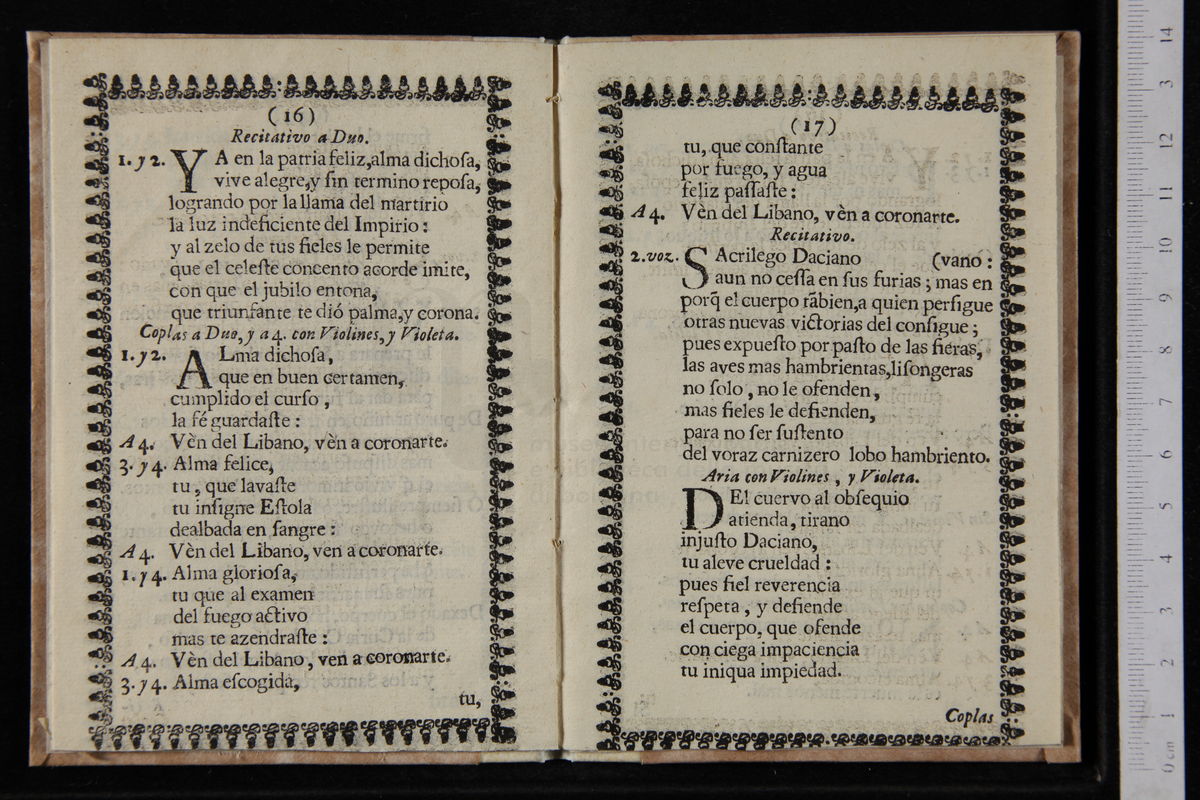 (16)
Recitativo a Duo.
1. y 2. YA en la patria feliz,alma dichoſa,
vive alegre,y ſin termino repoſa,
logrando por la llama del martirio
la luz indeficiente del Impirio :
y al zelo de tus fieles le permite
que el celeſte concento acorde imite,
con que el jubilo entona,
que triunfante te dió palma,y corona.
Coplas a Duo, y a 4. con Violines, y Violeta.
1. y 2. ALma dichoſa,
que en buen certamen,
cumplido el curſo ,
la fé guardaſte :
A 4. Vèn del Libano, vèn a coronarte.
3. y 4. Alma felice,
tu , que lavaſte
tu inſigne Eſtola
dealbada en ſangre :
A 4. Vèn del Libano, ven a coronarte.
1. y 4. Alma glorioſa,
tu que al examen
del fuego activo
mas te azendraſte :
A 4. Vèn del Libano , ven a coronarte.
3. y 4. Alma eſcogida,
tu,
(17)
tu, que conſtante
por fuego, y agua
feliz paſſaſte :
A 4. Vèn del Libano, vèn a coronarte.
Recitativo.
2. voz. SAcrilego Daciano (vano :
aun no ceſſa en ſus furias ; mas en
porq̃ el cuerpo tãbien,a quien perſigue
otras nuevas victorias del conſigue ;
pues expueſto por paſto de las fieras,
las aves mas hambrientas,liſongeras
no ſolo , no le ofenden ,
mas fieles le defienden,
para no ſer ſuſtento
del voraz carnizero lobo hambriento.
Aria con Violines , y Violeta.
DEl cuervo al obſequio
atienda, tirano
injuſto Daciano,
tu aleve crueldad :
pues fiel reverencia
reſpeta , y defiende
el cuerpo, que ofende
con ciega impaciencia
tu iniqua impiedad.
Coplas
14
3
12
11
10
9
8
7
6
5
4
3
2
1
0 cm